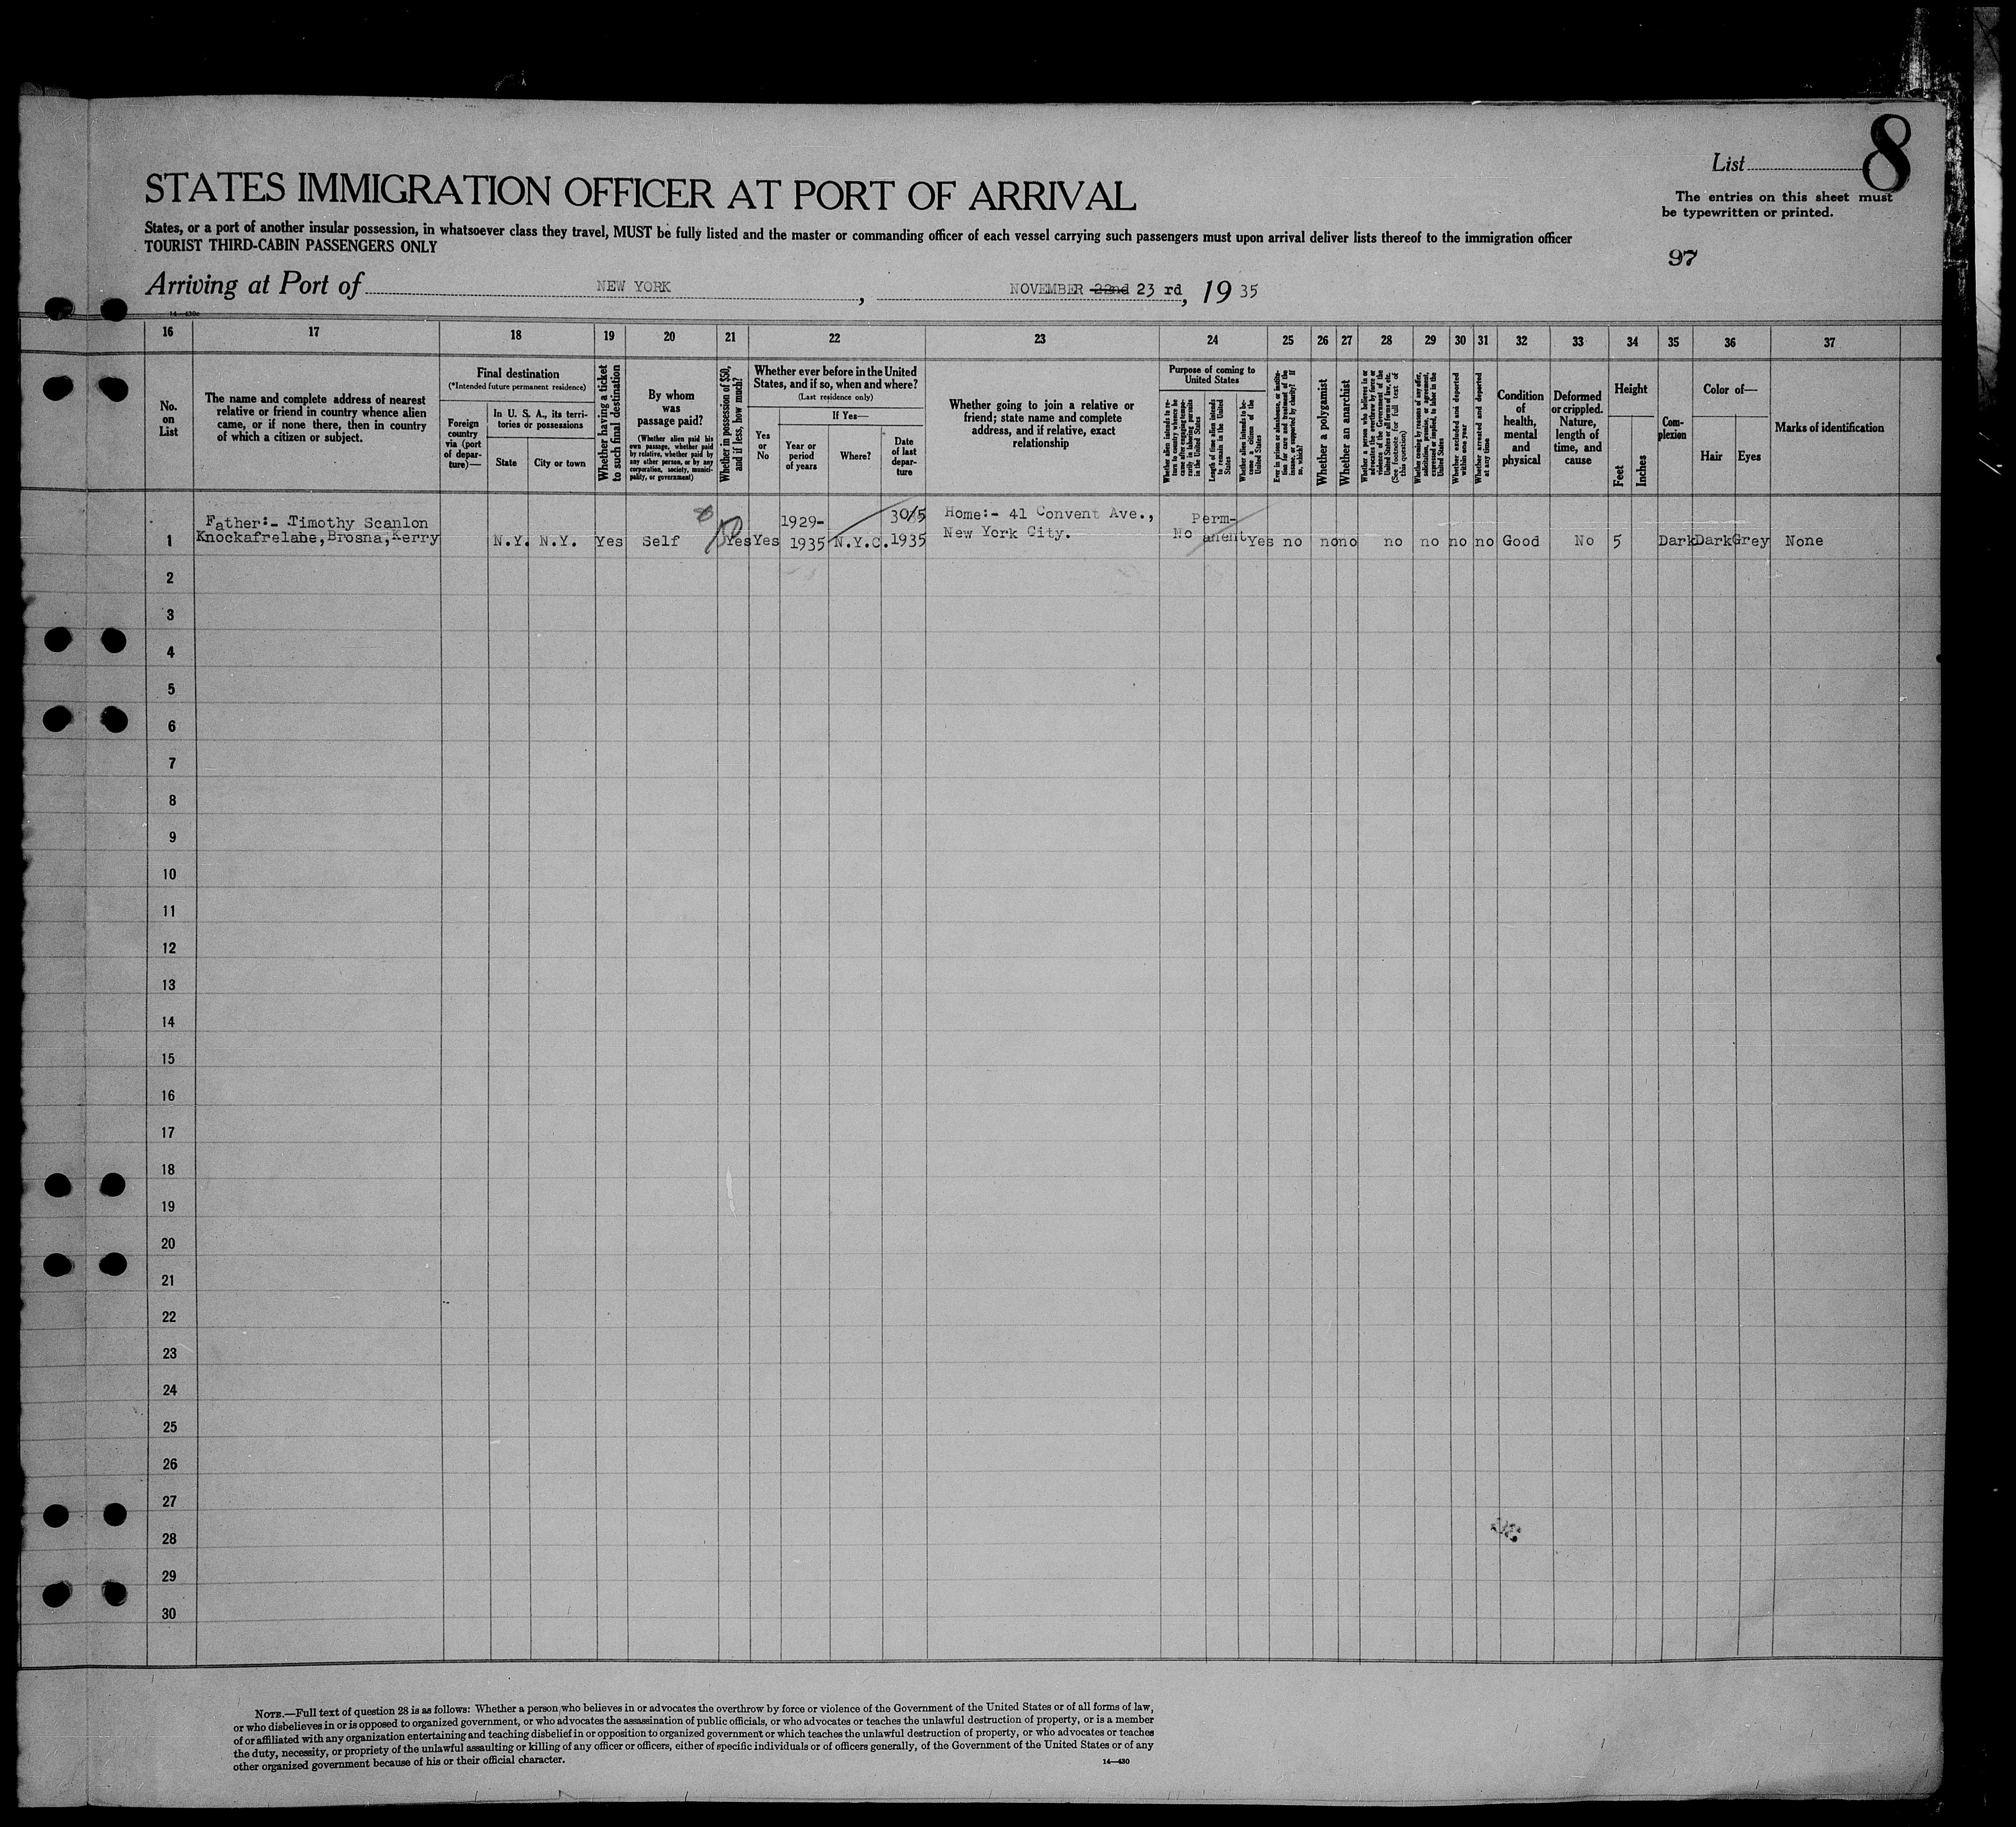 List 8
STATES IMMIGRATION OFFICER AT PORT OF ARRIVAL
The entries on this sheet must
be typewritten or printed.
States, or a port of another insular possession, in whatsoever class they travel, MUST be fully listed and the master or commanding officer of each vessel carrying such passengers must upon arrival deliver lists thereof to the immigration officer
TOURIST THIRD-CABIN PASSENGERS ONLY
97
Arriving at Port of NEW YORK, NOVEMBER 22nd 23 rd, 1935
16 17 18 19 20 21 22 23 24 25 26 27 28 29 30 31 32 33 34 35 36 37
No.
on
List
The name and complete address of nearest
relative or friend in country whence alien
came, or if none there, then in country
of which a citizen or subject.
Final destination
(*Intended future permanent residence)
Foreign
country
via (port
of depar-
ture)—
In U. S. A., its terri-
tories or possessions
State
City or town
Whether having a ticket
to such final destination
By whom
was
passage paid?
(Whether alien paid his
own passage, whether paid
by relative, whether paid by
any other person, or by any
corporation, society, munici-
pality, or government)
Whether in possession of $50,
and if less, how much?
Whether ever before in the United
States, and if so, when and where?
(Last residence only)
Yes
or
No
If Yes—
Year or
period
of years
Where?
Date
of last
depar-
ture
Whether going to join a relative or
friend; state name and complete
address, and if relative, exact
relationship
Purpose of coming to
United States
Whether alien intends to re-
turn to country whence he
came after engaging tempo-
rarily in laboring pursuits
in the United States
Length of time alien intends
to remain in the United
States
Whether alien intends to be-
come a citizen of the
United States
Ever in prison or almshouse, or institu-
tion for care and treatment of the
insane, or supported by charity? If
so, which?
Whether a polygamist
Whether an anarchist
Whether a person who believes in or
advocates the overthrow by force or
violence of the Government of the
United States or all forms of law, etc.
(See footnote for full text of
this question)
Whether coming by reason of any offer,
solicitation, promise, or agreement,
expressed or implied, to labor in the
United States
Whether excluded and deported
within one year
Whether arrested and deported
at any time
Condition
of
health,
mental
and
physical
Deformed
or crippled.
Nature,
length of
time, and
cause
Height
Feet
Inches
Com-
plexion
Color of—
Hair
Eyes
Marks of identification
Father:- Timothy Scanlon 1929- 30/5 Home:- 41 Convent Ave., Perm-
1 Knockafrelahe, Brosna, Kerry N.Y. N.Y. Yes Self Yes Yes 1935 N.Y.C. 1935 New York City. No anent Yes no no no no no no no Good No 5 Dark Dark Grey None
2
3
4
5
6
7
8
9
10
11
12
13
14
15
16
17
18
19
20
21
22
23
24
25
26
27
28
29
30
NOTE.—Full text of question 28 is as follows: Whether a person who believes in or advocates the overthrow by force or violence of the Government of the United States or of all forms of law,
or who disbelieves in or is opposed to organized government, or who advocates the assassination of public officials, or who advocates or teaches the unlawful destruction of property, or is a member
of or affiliated with any organization entertaining and teaching disbelief in or opposition to organized government or which teaches the unlawful destruction of property, or who advocates or teaches
the duty, necessity, or propriety of the unlawful assaulting or killing of any officer or officers, either of specific individuals or of officers generally, of the Government of the United States or of any
other organized government because of his or their official character.
14—430